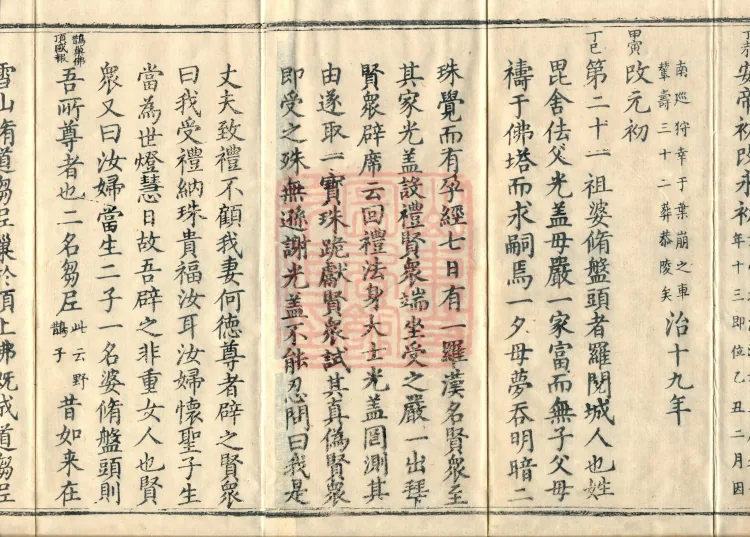 安帝初改永初年十三即位乙丑二月因
南巡狩幸于葉崩之車
輦壽三十二葬恭陵矣
治十九年
甲寅
改元初
丁巳
第二十一祖婆脩盤頭者羅閱城人也姓
毘舍佉父光盖母嚴一家富而無子父母
禱于佛塔而求嗣焉一夕母夢吞明暗二
珠覺而有孕經七日有一羅漢名賢衆至
其家光盖設禮賢衆端坐受之嚴一出拜
賢衆辟席云回禮法身大士光盖罔測其
由遂取一寶珠跪獻賢衆試其真偽賢衆
即受之殊無遜謝光盖不能忍問曰我是
丈夫致禮不顧我妻何德尊者辟之賢衆
曰我受禮納珠貴福汝耳汝婦懷聖子生
當為世燈慧日故吾辟之非重女人也賢
衆又曰汝婦當生二子一名婆脩盤頭則
鵲巢佛
頂國報
吾所尊者也二名芻尼此云野鵲子昔如来在
雪山脩道芻尼巢於頂上佛既成道芻尼